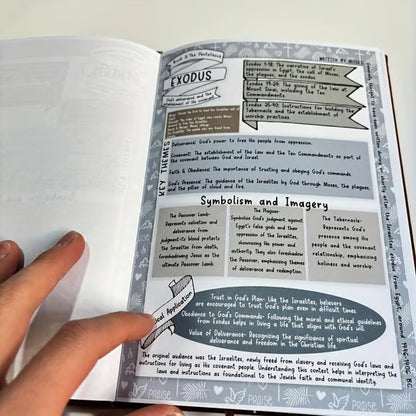 Book 2: The Pentateuch
WRITTEN BY: MOSES
EXODUS
God's deliverance and the
establishment of His covenant
Exodus 1-18: The narrative of Israel's
oppression in Egypt, the call of Moses,
the plagues, and the exodus.
Exodus 19-24: The giving of the Law at
Mount Sinai, including the Ten
Commandments.
Exodus 25-40: Instructions for building the
Tabernacle and establishing worship
practices.
KEY THEMES
Deliverance: God's power to free His people from oppression.
Covenant: The establishment of the Law and the Ten Commandments as part of
the covenant between God and Israel.
Faith & Obedience: The importance of trusting and obeying God's commands.
God's Presence: The guidance of the Israelites by God through Moses, the plagues,
and the pillar of cloud and fire.
Symbolism and Imagery
The Passover Lamb-
Represents salvation and
deliverance from
judgment-its blood protects
the Israelites from death,
foreshadowing Jesus as the
ultimate Passover Lamb.
The Plagues-
Symbolize God's judgment against
Egypt's false gods and their
oppression of the Israelites,
showcasing His power and
authority. They also foreshadow
the Passover, emphasizing themes
of deliverance and redemption.
The Tabernacle-
Represents God's
presence among His
people and the covenant
relationship, emphasizing
holiness and worship.
Application
Trust in God's Plan- Like the Israelites, believers
are encouraged to trust God's plan even in difficult times.
Obedience to God's Commands- Following the moral and ethical guidelines
from Exodus helps in living a life that aligns with God's will.
Value of Deliverance- Recognizing the significance of spiritual
deliverance and freedom in the Christian life.
The original audience was the Israelites, newly freed from slavery and receiving God's laws and
instructions for living as His covenant people. Understanding this context helps in interpreting the
laws and instructions as foundational to the Jewish faith and communal identity.
PRAISE
PRAISE